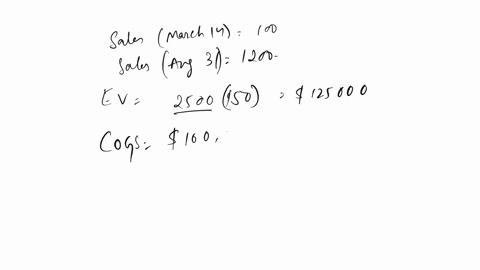 Sales (March 14) = 100
Sales (Aug 31) = 1200
EV = 2500 ($50) = $125000
COGS = $100,